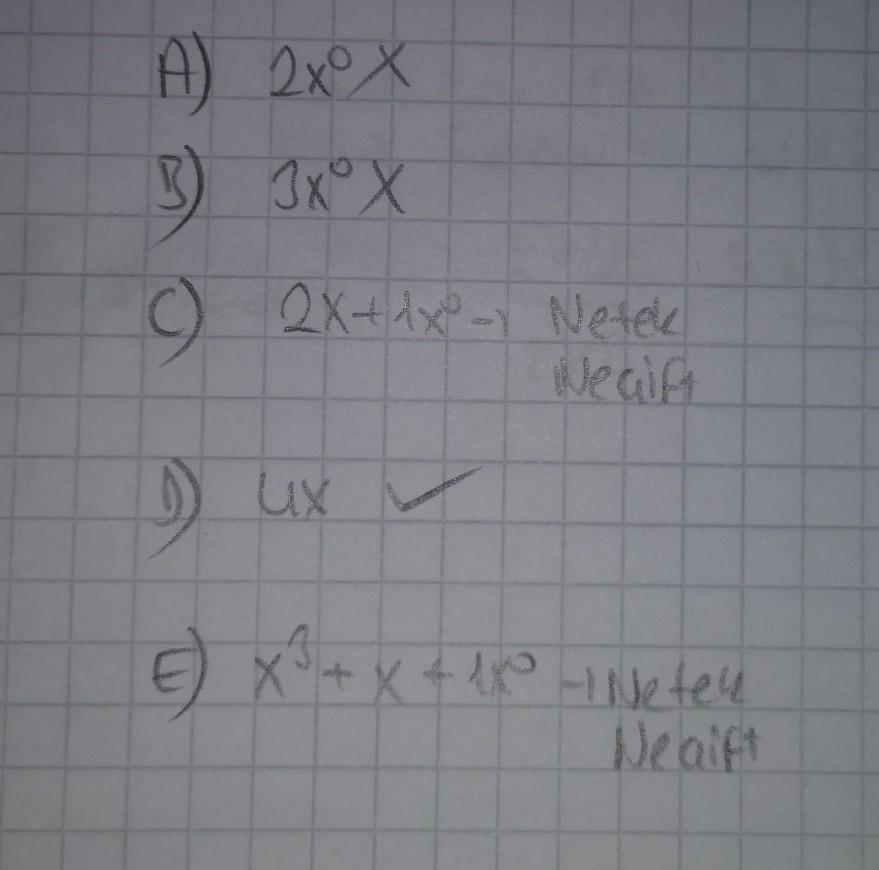 A) 2x⁰ X
B) 3x⁰ X
C) 2x+1x⁰ → Netek
Neçift
D) 4x ✓
E) x³ + x + 1x⁰ → Netek
Neçift